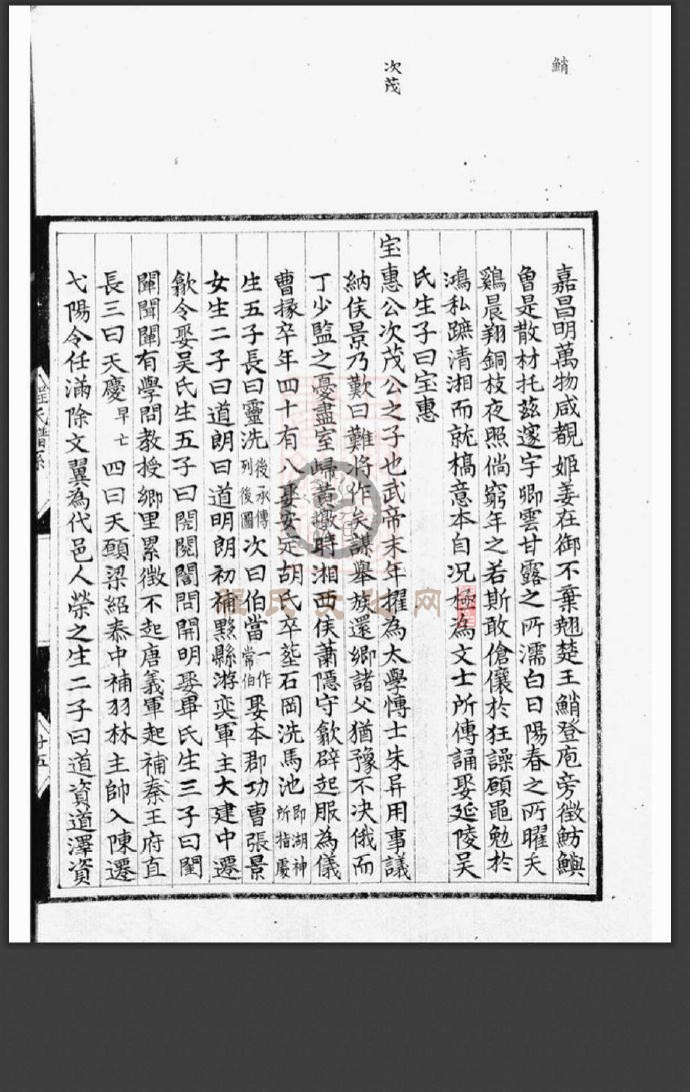 鮹
次茂
嘉昌明萬物咸覩姬姜在御不棄翹楚王鮹登庖旁徵魴鱮
魯是散材托茲邃宇卿雲甘露之所濡白日陽春之所曜夭
鷄晨翔銅枝夜照倘窮年之若斯敢傖儴於狂譟頋黽勉於
鴻私蹠清湘而就槁意本自况極為文士所傳誦娶延陵吴
氏生子曰宝惠
宝惠公次茂公之子也武帝末年擢為太學愽士朱异用事議
納侯景乃歎曰難將作矣謀舉族還鄉諸父猶豫不决俄而
丁少監之憂盡室歸黄墩時湘西侯蕭隱守歙辟起服為儀
曹掾卒年四十有八娶安定胡氏卒塟石岡洗馬池即湖神所指處
生五子長曰靈洗後承傳列後圖次曰伯當一作常伯娶本郡功曹張景
女生二子曰道朗曰道明朗初黟縣游奕軍主大建中遷
歙令娶吴氏生五子曰閲誾問開明娶畢氏生三子曰閨
闡聞闡有學問教授鄉里累徵不起唐義軍起補秦王府直
長三曰天慶早亡四曰天頋梁紹泰中補羽林主帥入陳遷
弋陽令任滿除文翼為代邑人榮之生二子曰道資道澤資
程氏譜系
廿五
程氏文化网